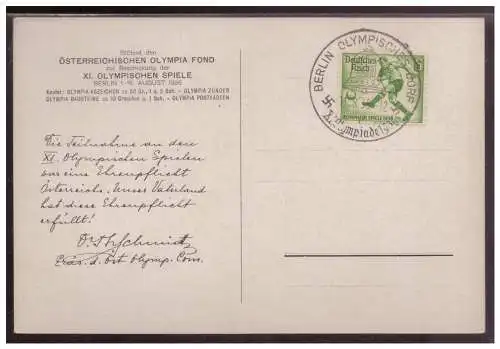 Stützet den
ÖSTERREICHISCHEN OLYMPIA FOND
zur Beschickung der
XI. OLYMPISCHEN SPIELE
BERLIN 1-16. AUGUST 1936
Kaufet: OLYMPIA-ABZEICHEN zu 50 Gr., 1 u. 2 Sch. - OLYMPIA ZÜNDER
OLYMPIA BAUSTEINE zu 10 Groschen u. 1 Sch. - OLYMPIA POSTKARTEN
Die Teilnahme an den
XI. Olympischen Spielen
war eine Ehrenpflicht
Österreichs. Unser Vaterland
hat diese Ehrenpflicht
erfüllt!
Dr Th Schmidt
Präs. d. Öst. Olymp. Com.
BERLIN OLYMPISCHES DORF
XI. Olympiade
Deutsches
Reich